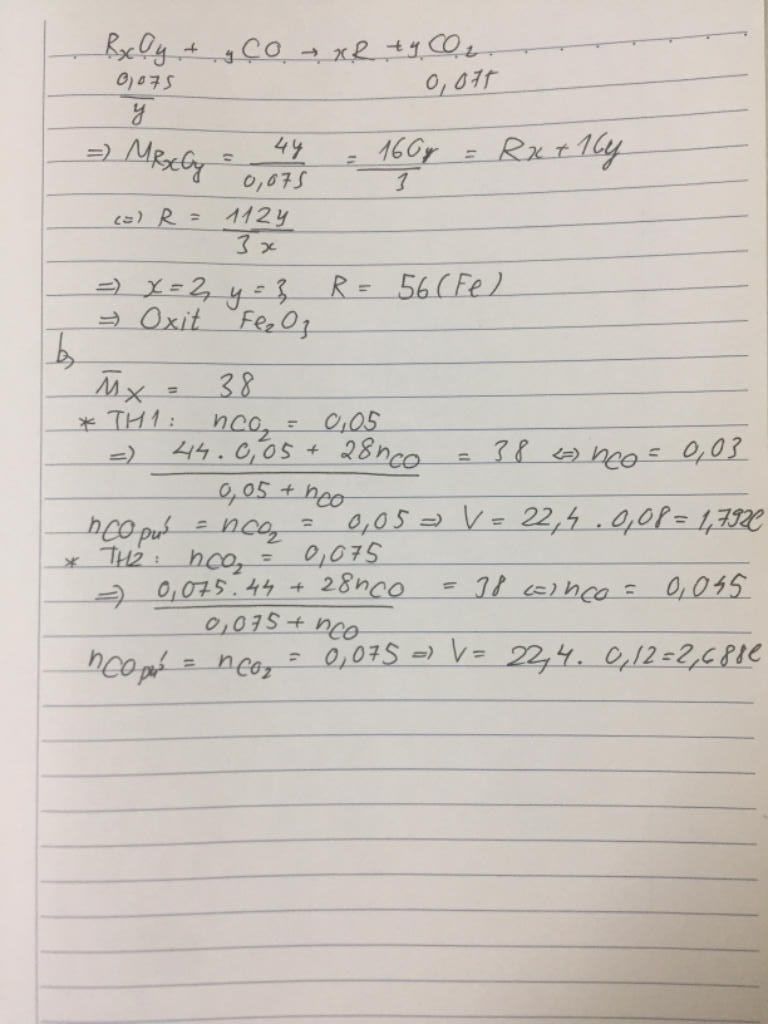 RxOy + yCO → xR + yCO₂
0,075/y 0,075
=> M RxOy = 4y/0,075 = 160y/3 = Rx + 16y
<=> R = 112y/3x
=> x = 2, y = 3, R = 56 (Fe)
=> Oxit Fe₂O₃
b,
M̄x = 38
* TH1: nCO₂ = 0,05
=> (44.0,05 + 28nCO)/(0,05 + nCO) = 38 <=> nCO = 0,03
nCO pứ = nCO₂ = 0,05 => V = 22,4 . 0,08 = 1,792l
* TH2: nCO₂ = 0,075
=> (0,075.44 + 28nCO)/(0,075 + nCO) = 38 <=> nCO = 0,045
nCO pứ = nCO₂ = 0,075 => V = 22,4 . 0,12 = 2,688l